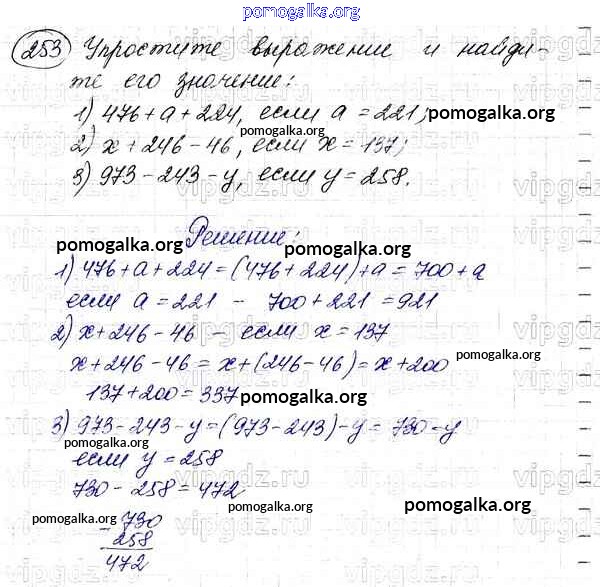 pomogalka.org
253 Упростите выражение и найди-
те его значение:
1) 476 + а + 224, если а = 221; pomogalka.org
pomogalka.org
2) х + 246 - 46, если х = 137;
3) 973 - 243 - у, если у = 258.
Решение:
pomogalka.org pomogalka.org
1) 476 + а + 224 = (476 + 224) + а = 700 + а
если а = 221 - 700 + 221 = 921
2) х + 246 - 46 - если х = 137
pomogalka.org
х + 246 - 46 = х + (246 - 46) = х + 200
137 + 200 = 337
pomogalka.org
3) 973 - 243 - у = (973 - 243) - у = 730 - у
pomogalka.org
если у = 258
730 - 258 = 472
pomogalka.org
pomogalka.org pomogalka.org
- 730
258
472
vipgdz.ru